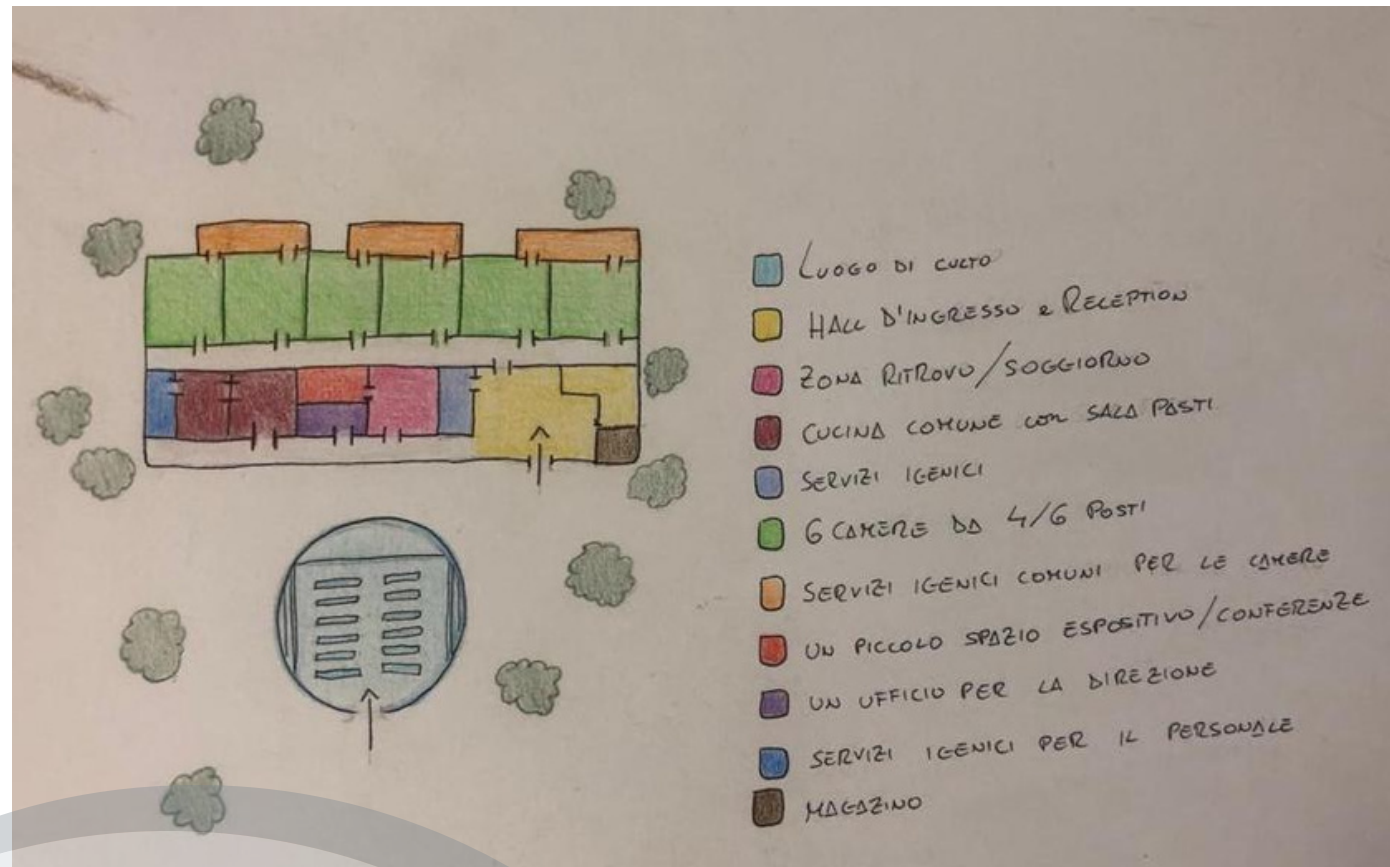 LUOGO DI CULTO
HALL D'INGRESSO e RECEPTION
ZONA RITROVO/SOGGIORNO
CUCINA COMUNE con SALA PASTI
SERVIZI IGENICI
6 CAMERE DA 4/6 POSTI
SERVIZI IGENICI COMUNI PER LE CAMERE
UN PICCOLO SPAZIO ESPOSITIVO/CONFERENZE
UN UFFICIO PER LA DIREZIONE
SERVIZI IGENICI PER IL PERSONALE
MAGAZINO